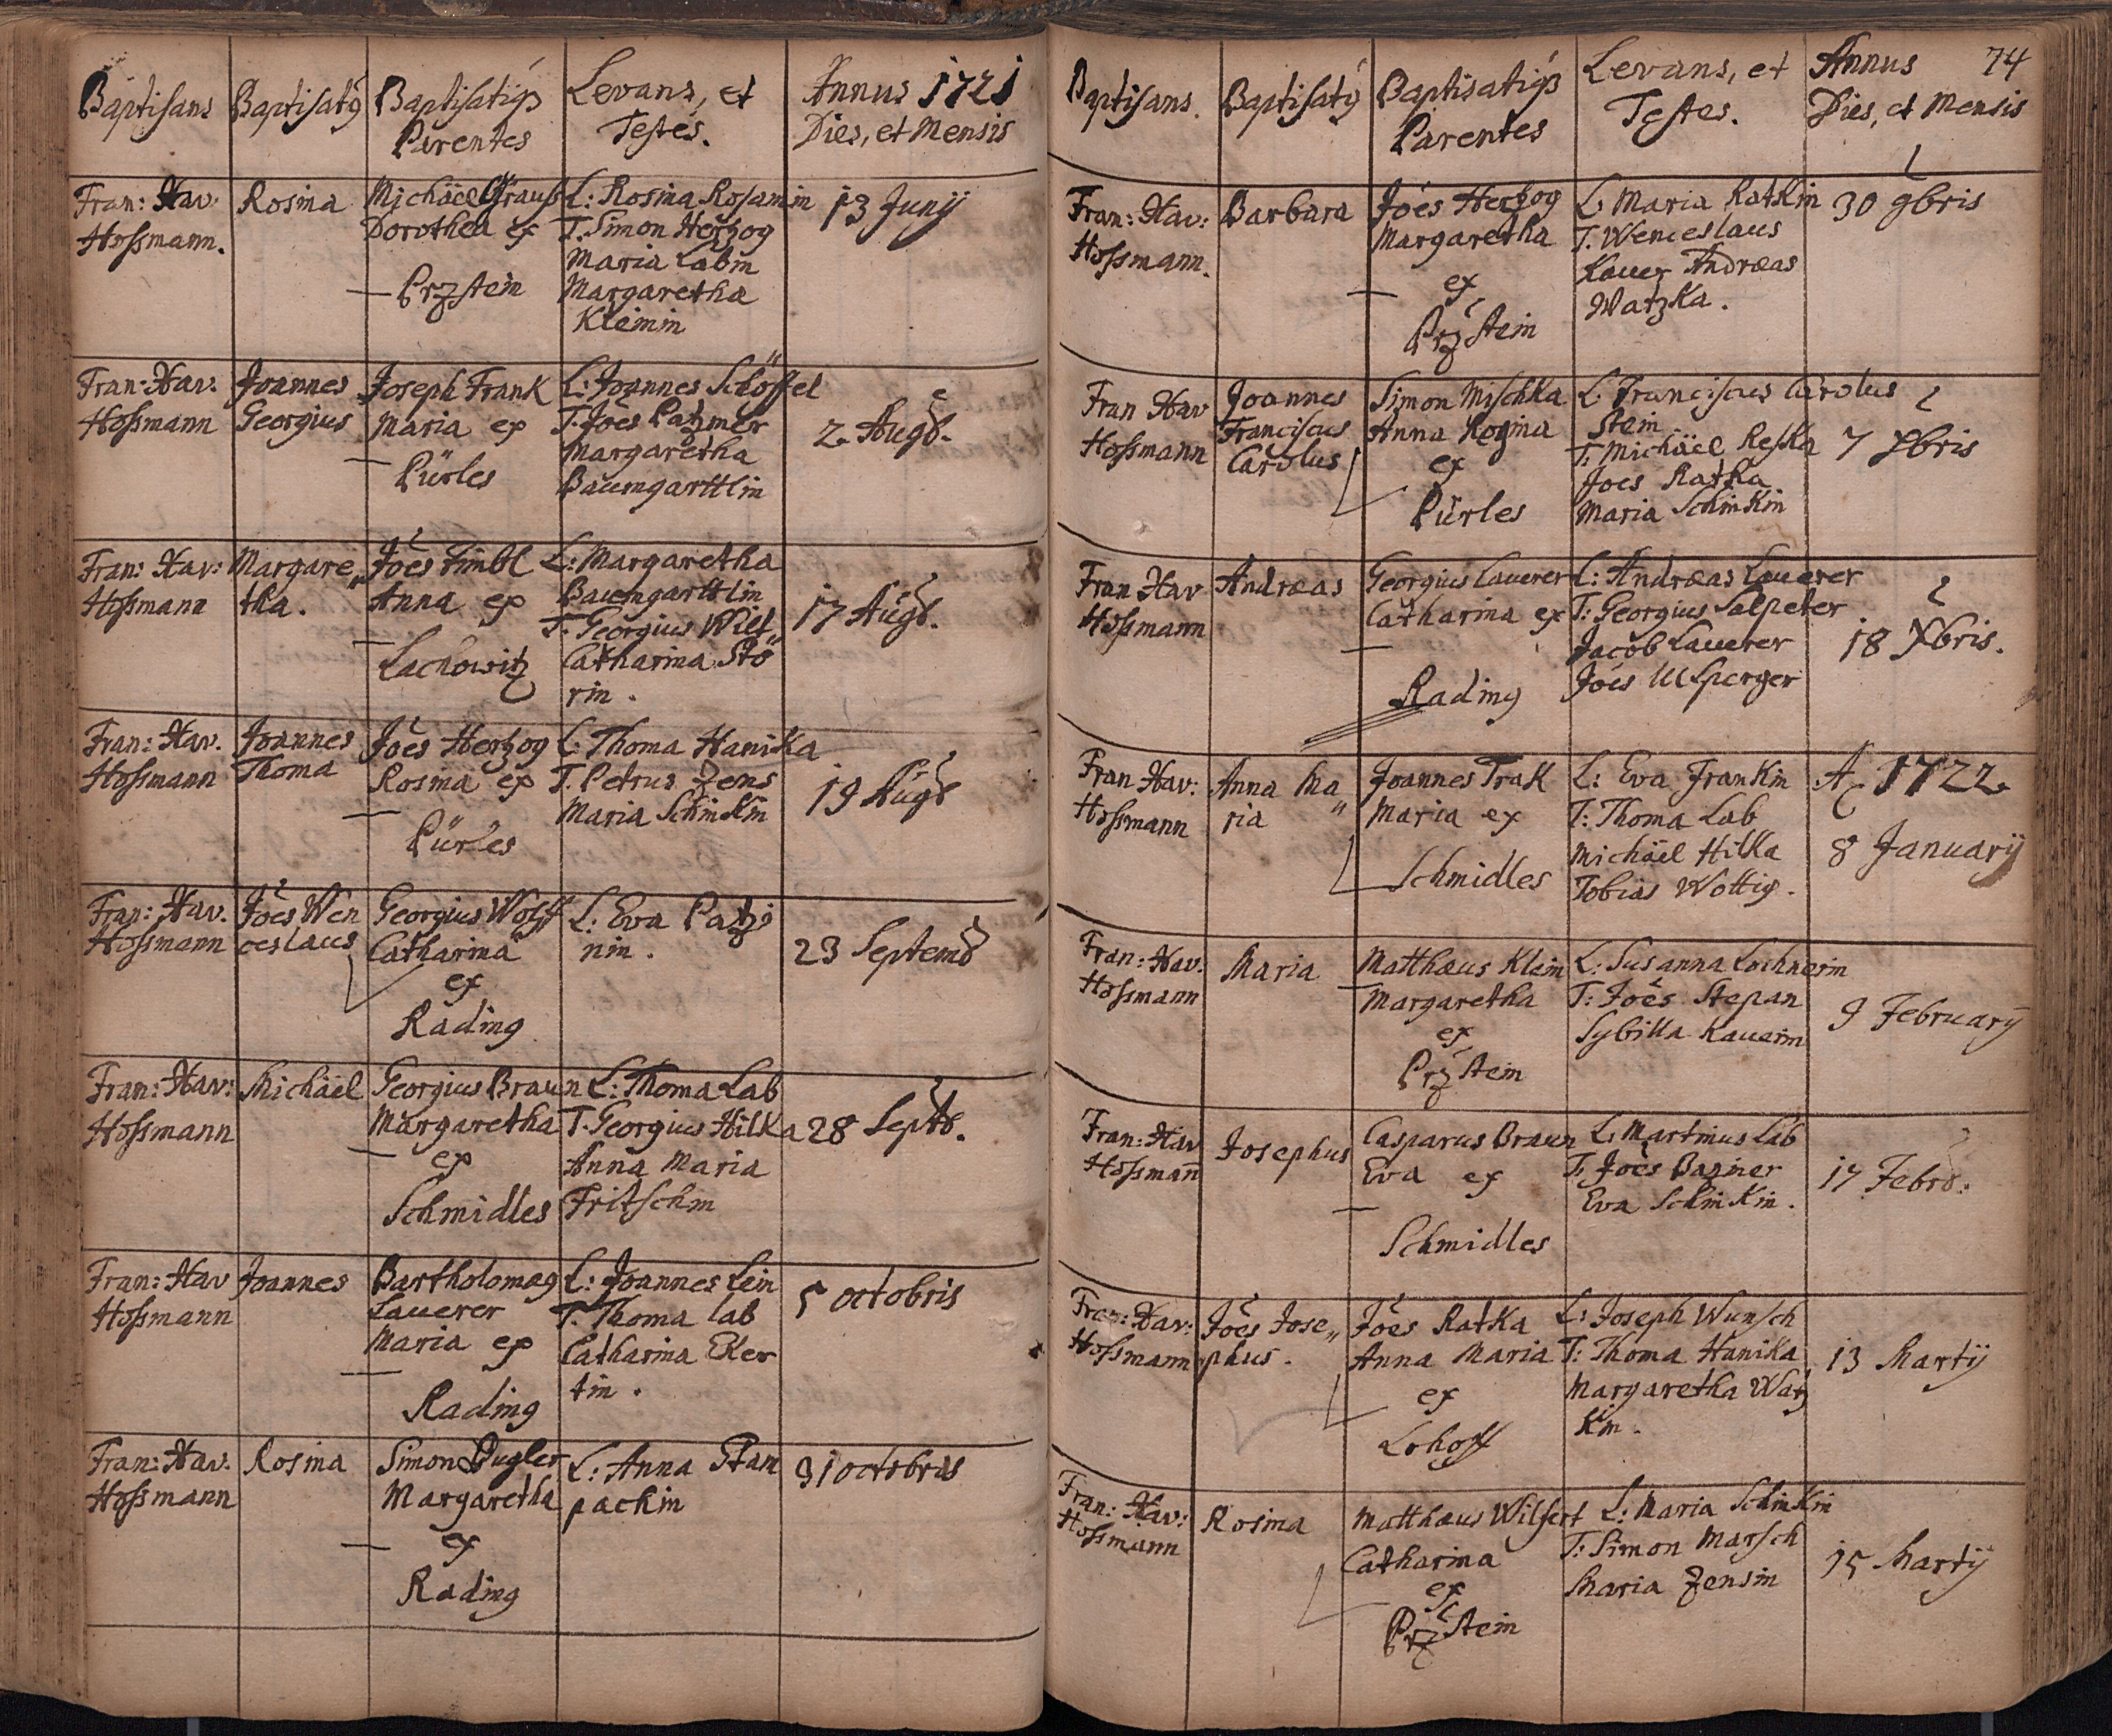 Baptisans
Baptisatq
Baptisatiqs
Parentes
Levans, et
Testes.
Annus 1721
Dies, et Mensis
Fran: Xav:
Hossmann.
Rosina
Michäel Grauss
Dorothea ex
Przstein
L: Rosina Rosamin
T. Simon Hertzog
Maria Labin
Margaretha
Kleinin
13 Junij
Fran: Xav:
Hossmann
Joannes
Georgius
Joseph Frank
Maria ex
Pürles
L: Joannes Schöffel
T. Joes Patzner
Margaretha
Baumgarttlin
2. Augb.
Fran: Xav:
Hossmann
Margare„
tha.
Joes Fimbl
Anna ex
Lachowitz
L: Margaretha
Baumgarttlin
T. Georgius Wilf„
Catharina Stö
rin.
17 Augb.
Fran: Xav.
Hossmann
Joannes
Thoma
Joes Hertzog
Rosina ex
Pürles
L: Thoma Hanika
T. Petrus Zens
Maria Schinkin
19 Augb
Fran: Xav.
Hossmann
Joes Wen
ceslaus
Georgius Wolff
Catharina
ex
Rading
L: Eva Patz
nin.
23 Septemb
Fran: Xav:
Hossmann
Michäel
Georgius Braun
Margaretha
ex
Schmidles
L: Thoma Lab
T. Georgius Hilka
Anna Maria
Fritschin
28 Septb.
Fran: Xav
Hossmann
Joannes
Bartholomaq
Lauerer
Maria ex
Rading
L: Joannes Lein
T. Thoma lab
Catharina Eker
tin.
5 octobris
Fran: Xav.
Hossmann
Rosina
Simon Dugler
Margaretha
ex
Rading
L: Anna Stan
packin
31 octobris
74
Baptisans.
Baptisatq
Baptisatiqs
Parentes
Levans, et
Testes.
Annus
Dies, et Mensis
Fran: Xav:
Hossmann.
Barbara
Joes Hertzog
Margaretha
ex
Przstein
L: Maria Ratkin
T. Wenceslaus
Kauer Andræas
Watzka.
30 9bris
Fran Xav
Hossmann
Joannes
Franciscus
Carolus
Simon Mischka
Anna Rosina
ex
Pürles
L. Franciscus Carolus
Stein
T: Michäel Reska
Joes Ratka
Maria Schinkin
7 Xbris
Fran Xav
Hossmann
Andræas
Georgius Lauerer
Catharina ex
Rading
L: Andræas Lauerer
T: Georgius Salpeter
Jacob Lauerer
Joes Ulsperger
18 Xbris.
Fran Xav:
Hossmann
Anna Ma„
ria
Joannes Trak
Maria ex
Schmidles
L: Eva Frankin
T: Thoma Lab
Michäel Hilka
Tobias Wottig.
A 1722
8 Januarij
Fran: Xav:
Hossmann
Maria
Matthæus Klein
Margaretha
ex
Przstein
L: Susanna Lochnerin
T: Joes Stepan
Sybilla Kauerin
9 Februarij
Fran: Xav
Hossmann
Josephus
Casparus Braun
Eva ex
Schmidles
L: Martinus Lab
T: Joes Bazner
Eva Schinkin.
17 Febrb:
Fran: Xav:
Hossmann
Joes Jose„
phus.
Joes Ratka
Anna Maria
ex
Lohoff
L: Joseph Wunsch
T: Thoma Hanika
Margaretha Watz
kin.
13 Martij
Fran: Xav:
Hossmann
Rosina
Matthæus Wilfert
Catharina
ex
Przstein
L: Maria Schinkin
T: Simon Marsch
Maria Zensin
15 Martij